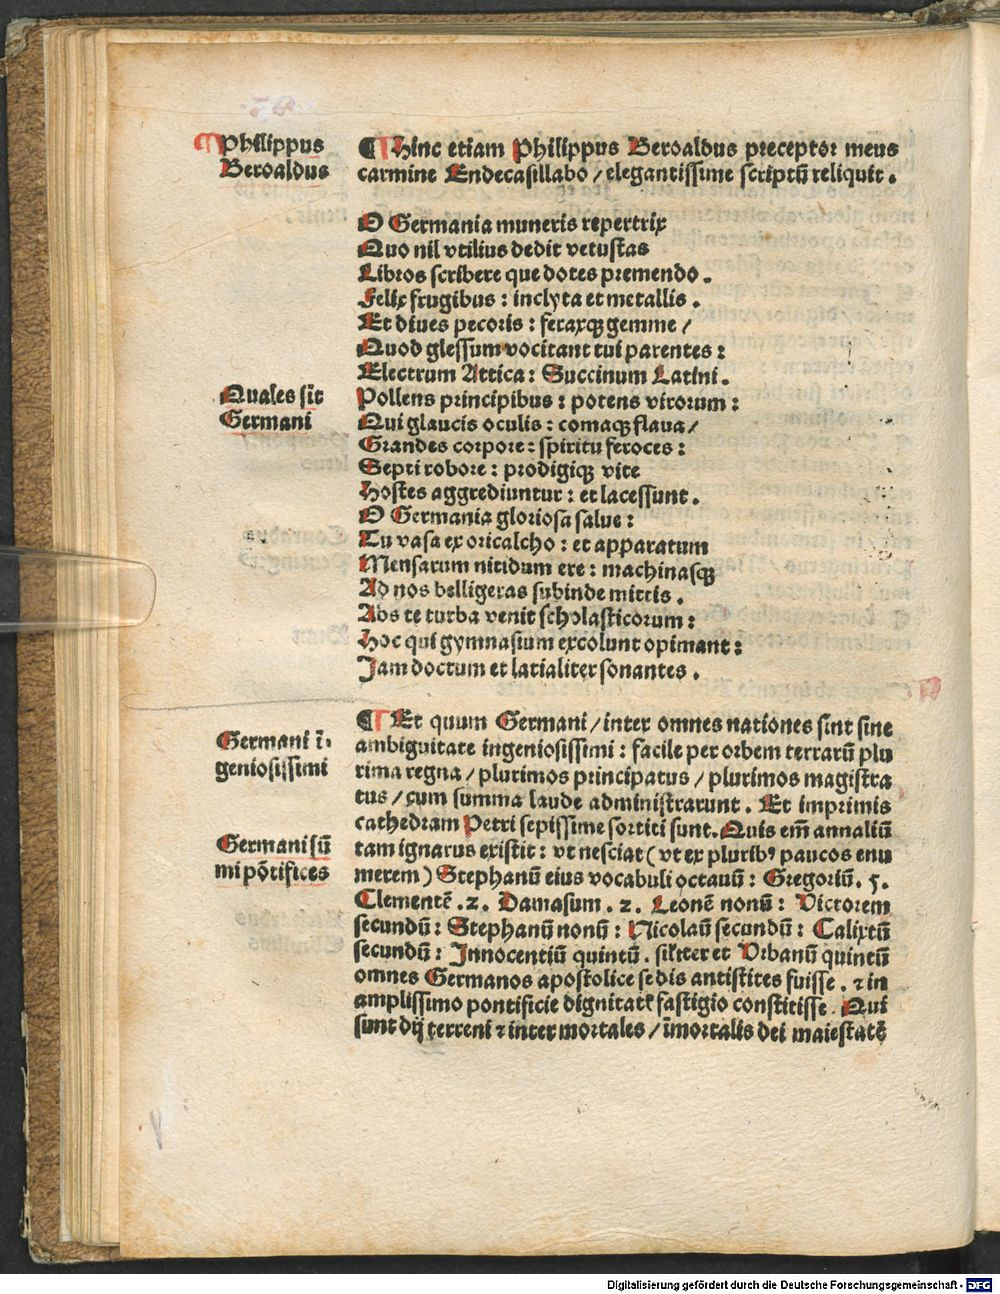 Philippus
Beroaldus
¶ Hinc etiam Philippus Beroaldus preceptor meus
carmine Endecasillabo / elegantissime scriptū reliquit .
O Germania muneris repertrix
Quo nil vtilius dedit vetustas
Libros scribere que dotes premendo .
Felix frugibus : inclyta et metallis .
Et diues pecoris : feraxq̄ gemme /
Quod glessum vocitant tui parentes :
Electrum Attica : Succinum Latini .
Quales sīt
Germani
Pollens principibus : potens virorum :
Qui glaucis oculis : comaq̄ flaua /
Grandes corpore : spiritu feroces :
Septi robore : prodigiq̄ vite
Hostes aggrediuntur : et lacessunt .
O Germania gloriosa salue :
Tu vasa ex oricalcho : et apparatum
Mensarum nitidum ere : machinasq̄
Ad nos belligeras subinde mittis .
Abs te turba venit scholasticorum :
Hoc qui gymnasium excolunt opimant :
Jam doctum et latialiter sonantes .
Germani ī-
geniosissimi
¶ Et quum Germani / inter omnes nationes sint sine
ambiguitate ingeniosissimi : facile per orbem terrarū plu
rima regna / plurimos principatus / plurimos magistra
tus / cum summa laude administrarunt . Et imprimis
cathedram Petri sepissime sortiti sunt. Quis em̄ annaliū
Germani sū
mi pōtifices
tam ignarus existit : vt nesciat ( vt ex pluribꝰ paucos enu
merem ) Stephanū eius vocabuli octauū : Gregoriū . 5 .
Clementē . 2 . Damasum . 2 . Leonē nonū : Victorem
secundū : Stephanū nonū : Nicolaū secundū : Calixtū
secundū : Innocentiū quintū . siƚiter et Vrbanū quintū
omnes Germanos apostolice sedis antistites fuisse . ⁊ in
amplissimo pontificie dignitatꝭ fastigio constitisse . Qui
sunt dij terreni ⁊ inter mortales / īmortalis dei maiestatē
Digitalisierung gefördert durch die Deutsche Forschungsgemeinschaft - DFG